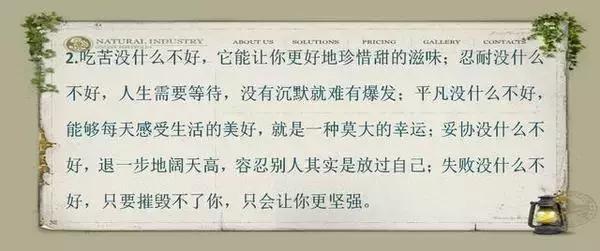 NATURAL INDUSTRY
ABOUT US SOLUTIONS PRICING GALLERY CONTACTS
2.吃苦没什么不好，它能让你更好地珍惜甜的滋味；忍耐没什么
不好，人生需要等待，没有沉默就难有爆发；平凡没什么不好，
能够每天感受生活的美好，就是一种莫大的幸运；妥协没什么不
好，退一步地阔天高，容忍别人其实是放过自己；失败没什么不
好，只要摧毁不了你，只会让你更坚强。